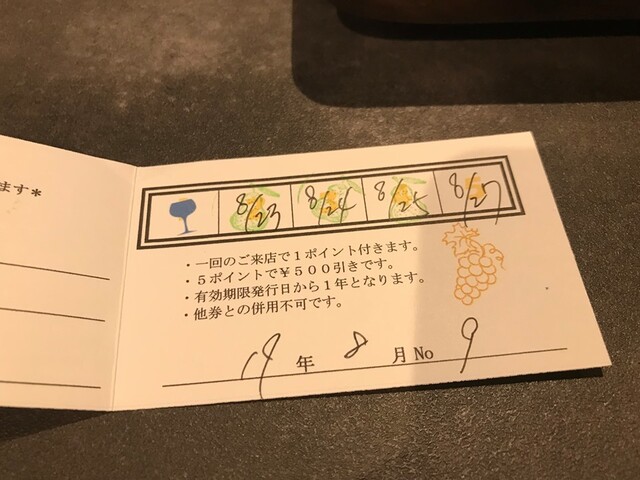 ます*
8/23 8/24 8/25 8/27
・一回のご来店で１ポイント付きます。
・５ポイントで￥５００引きです。
・有効期限発行日から１年となります。
・他券との併用不可です。
19 年 8 月 No 9